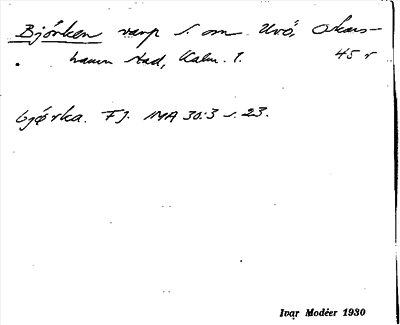 Björken varp S. om Uvö, Oskars-
hamn stad, Kalm. l. 45 r
bjørka. FJ. IMA 30:3 s. 23.
Ivar Modéer 1930